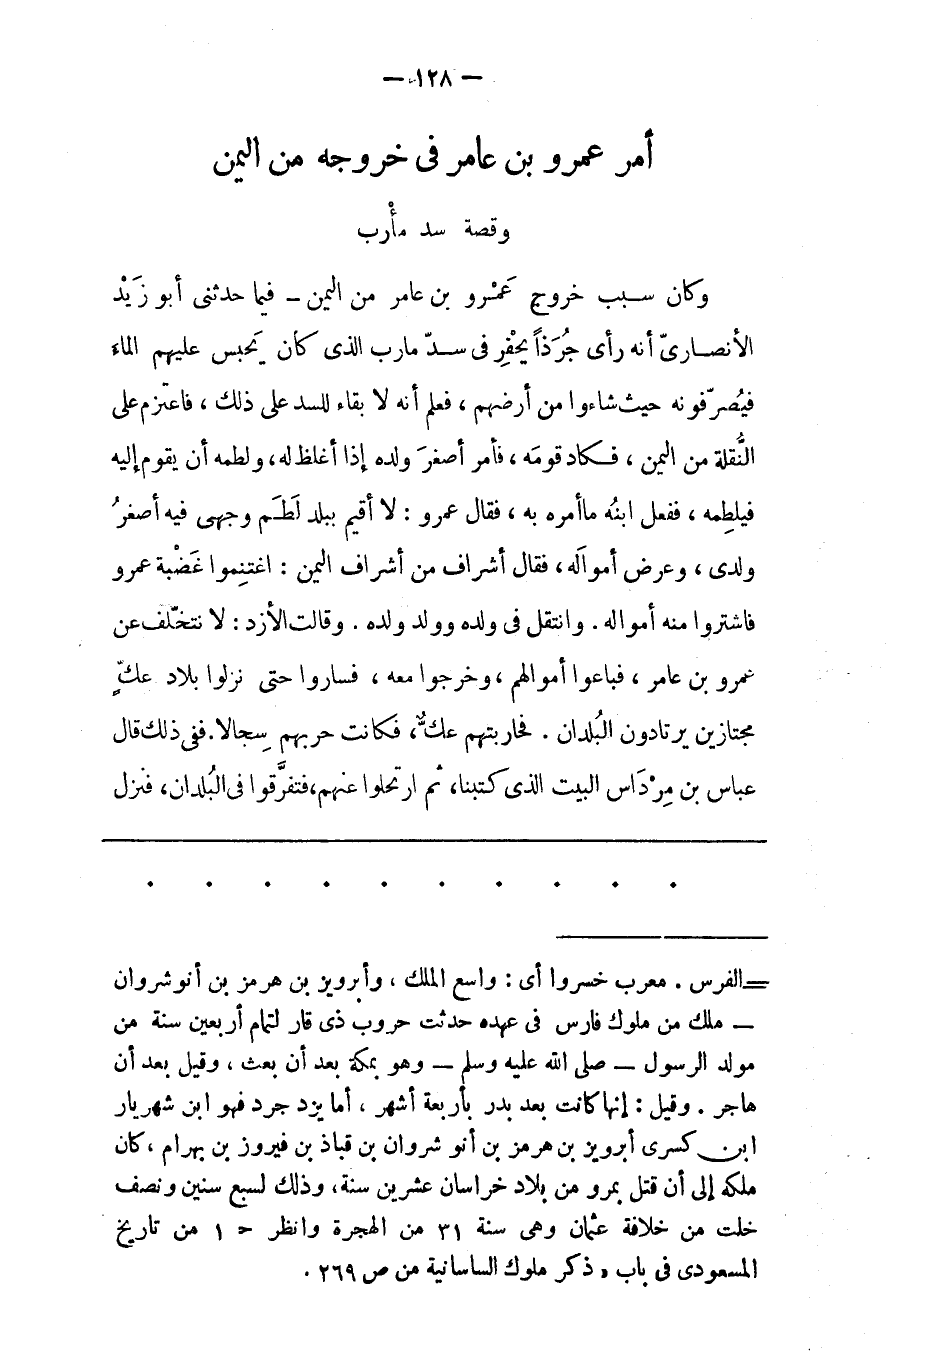 — ١٢٨ —
أمر عمرو بن عامر فى خروجه من اليمن
وقصة سد مأْرب
وكان سبب خروج عَمْرو بن عامر من اليمن – فيما حدثنى أبو زَيْد
الأنصارىّ أنه رأى جُرَذاً يحْفِر فى سدّ مارب الذى كان يَحبس عليهم الماء
فيُصرّفونه حيث شاءوا من أرضهم ، فعلم أنه لا بقاء للسد على ذلك ، فاعتزم على
النُّقلة من اليمن ، فكاد قومَه ، فأمر أصغرَ ولده إذا أغلظ له، ولطمه أن يقوم إليه
فيلطِمه ، ففعل ابنُه ماأمره به ، فقال عمرو : لا أقيم ببلد لَطَم وجهى فيه أصغرُ
ولدى ، وعرض أمواَله، فقال أشراف من أشراف اليمن : اغتنِموا غَضْبة عمرو
فاشتروا منه أمواله . وانتقل فى ولده وولد ولده . وقالت الأزد : لا نتخلّف عن
عمرو بن عامر ، فباعوا أموالهم ، وخرجوا معه ، فساروا حتى نزلوا بلاد عكّ
مجتازين يرتادون البُلدان . فحاربتهم عكٌّ، فكانت حربهم سِجالا. ففى ذلك قال
عباس بن مِرْدَاس البيت الذى كتبنا، ثم ارتحلوا عنهم،فتفرَّقوا فى البُلدان، فنزل
. . . . . . . . . .
=الفرس . معرب خسروا أى : واسع الملك ، وأبرويز بن هرمز بن أنوشروان
— ملك من ملوك فارس فى عهده حدثت حروب ذى قار لتمام أربعين سنة من
مولد الرسول — صلى الله عليه وسلم — وهو بمكة بعد أن بعث ، وقيل بعد أن
هاجر . وقيل : إنها كانت بعد بدر بأربعة أشهر ، أما يزد جرد فهو ابن شهريار
ابن كسرى أبرويز بن هرمز بن أنوشروان بن قباذ بن فيروز بن بهرام ، كان
ملكه إلى أن قتل بمرو من بلاد خراسان عشرين سنة، وذلك لسبع سنين ونصف
خلت من خلافة عثمان وهى سنة ٣١ من الهجرة وانظر ح ١ من تاريخ
المسعودى فى باب « ذكر ملوك الساسانية من ص ٢٦٩ .